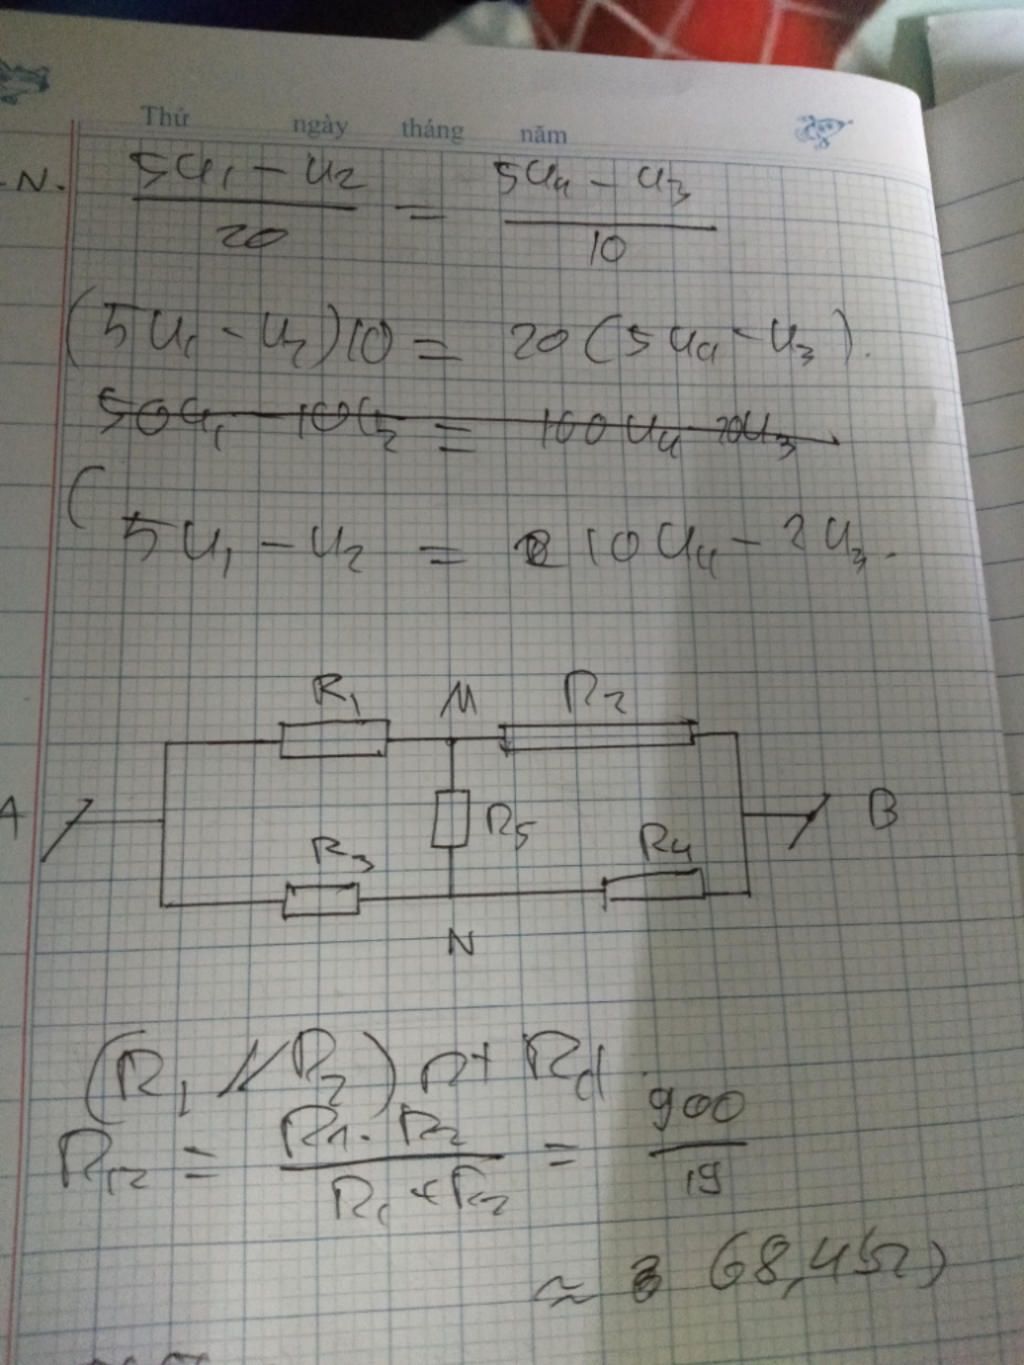 Thứ ngày tháng năm
-N.
5U₁ - U₂ / 20 = 5U₄ - U₃ / 10
(5U₁ - U₂)10 = 20(5U₄ - U₃).
50U₁ - 10U₂ = 100U₄ 20U₃
(
5U₁ - U₂ = 10U₄ - 2U₃.
R₁ M R₂
A R₅ B
R₃ R₄
N
(R₁ // R₂) nt Rd
R₁₂ = R₁. R₂ / R₁ + R₂ = 900 / 19
≈ (68,4Ω)